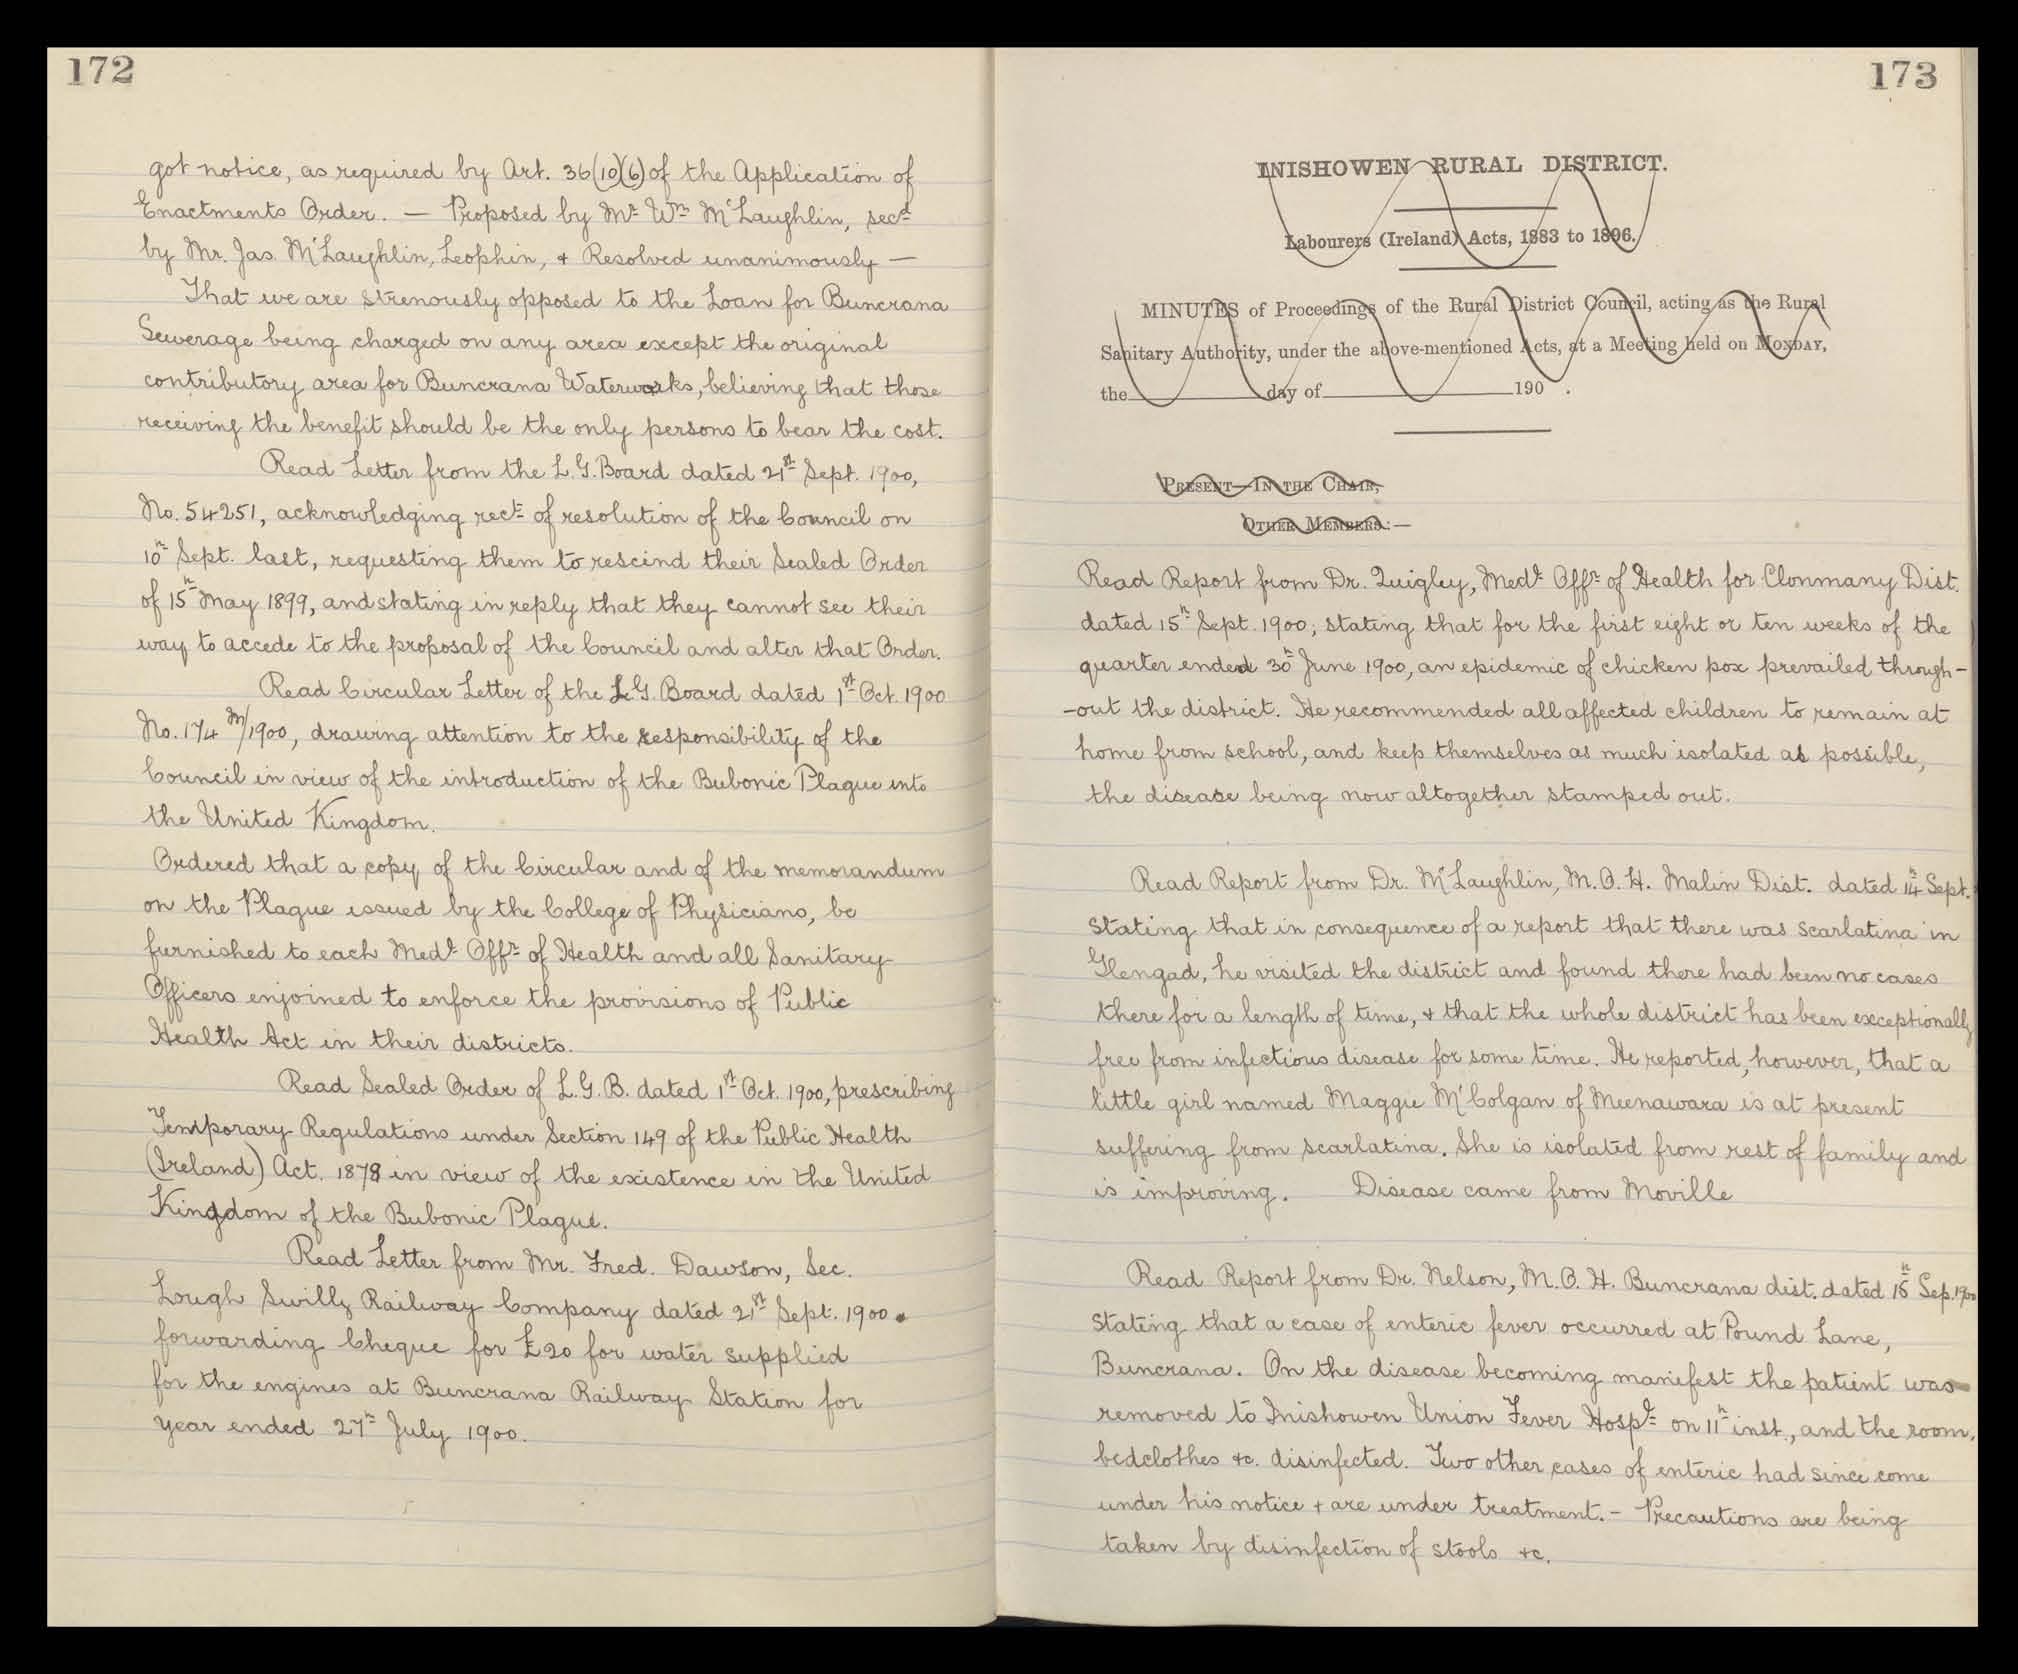 172
got notice, as required by Art. 36(10)(6) of the Application of
Enactments Order. — Proposed by Mr. Wm. McLaughlin, secd.
by Mr. Jas. McLaughlin, Leophin, & Resolved unanimously —
That we are strenously opposed to the Loan for Buncrana
Sewerage being charged on any area except the original
contributory area for Buncrana Waterworks, believing that those
receiving the benefit should be the only persons to bear the cost.
Read Letter from the L.G. Board dated 21st Sept. 1900,
No. 54251, acknowledging rect. of resolution of the Council on
10th Sept. last, requesting them to rescind their Sealed Order
of 15th May 1899, and stating in reply that they cannot see their
way to accede to the proposal of the Council and alter that Order.
Read Circular Letter of the L.G. Board dated 1st Oct. 1900
No. 174 M/1900, drawing attention to the responsibility of the
Council in view of the introduction of the Bubonic Plague into
the United Kingdom.
Ordered that a copy of the Circular and of the memorandum
on the Plague issued by the College of Physicians, be
furnished to each Medl. Offr. of Health and all Sanitary
Officers enjoined to enforce the provisions of Public
Health Act in their districts.
Read Sealed Order of L.G.B. dated 1st Oct. 1900, prescribing
Temporary Regulations under Section 149 of the Public Health
(Ireland) Act. 1878 in view of the existence in the United
Kingdom of the Bubonic Plague.
Read Letter from Mr. Fred. Dawson, Sec.
Lough Swilly Railway Company dated 21st Sept. 1900.
forwarding Cheque for £20 for water supplied
for the engines at Buncrana Railway Station for
year ended 27th July 1900.
173
INISHOWEN RURAL DISTRICT.
Labourers (Ireland) Acts, 1883 to 1896.
MINUTES of Proceedings of the Rural District Council, acting as the Rural
Sanitary Authority, under the above-mentioned Acts, at a Meeting held on MONDAY,
the day of 190 .
PRESENT—IN THE CHAIR,
OTHER MEMBERS:—
Read Report from Dr. Quigley, Medl. Offr. of Health for Clonmany Dist.
dated 15th Sept. 1900; stating that for the first eight or ten weeks of the
quarter ended 30th June 1900, an epidemic of chicken pox prevailed through-
-out the district. He recommended all affected children to remain at
home from school, and keep themselves as much isolated as possible,
the disease being now altogether stamped out.
Read Report from Dr. McLaughlin, M.O.H. Malin Dist. dated 14th Sept.
stating that in consequence of a report that there was scarlatina in
Glengad, he visited the district and found there had been no cases
there for a length of time, & that the whole district has been exceptionally
free from infectious disease for some time. He reported, however, that a
little girl named Maggie McColgan of Meenawara is at present
suffering from scarlatina. She is isolated from rest of family and
is improving. Disease came from Moville
Read Report from Dr. Nelson, M.O.H. Buncrana dist. dated 15th Sep. 1900
stating that a case of enteric fever occurred at Pound Lane,
Buncrana. On the disease becoming manifest the patient was
removed to Inishowen Union Fever Hospl. on 11th inst., and the room,
bedclothes &c. disinfected. Two other cases of enteric had since come
under his notice & are under treatment. – Precautions are being
taken by disinfection of stools &c.